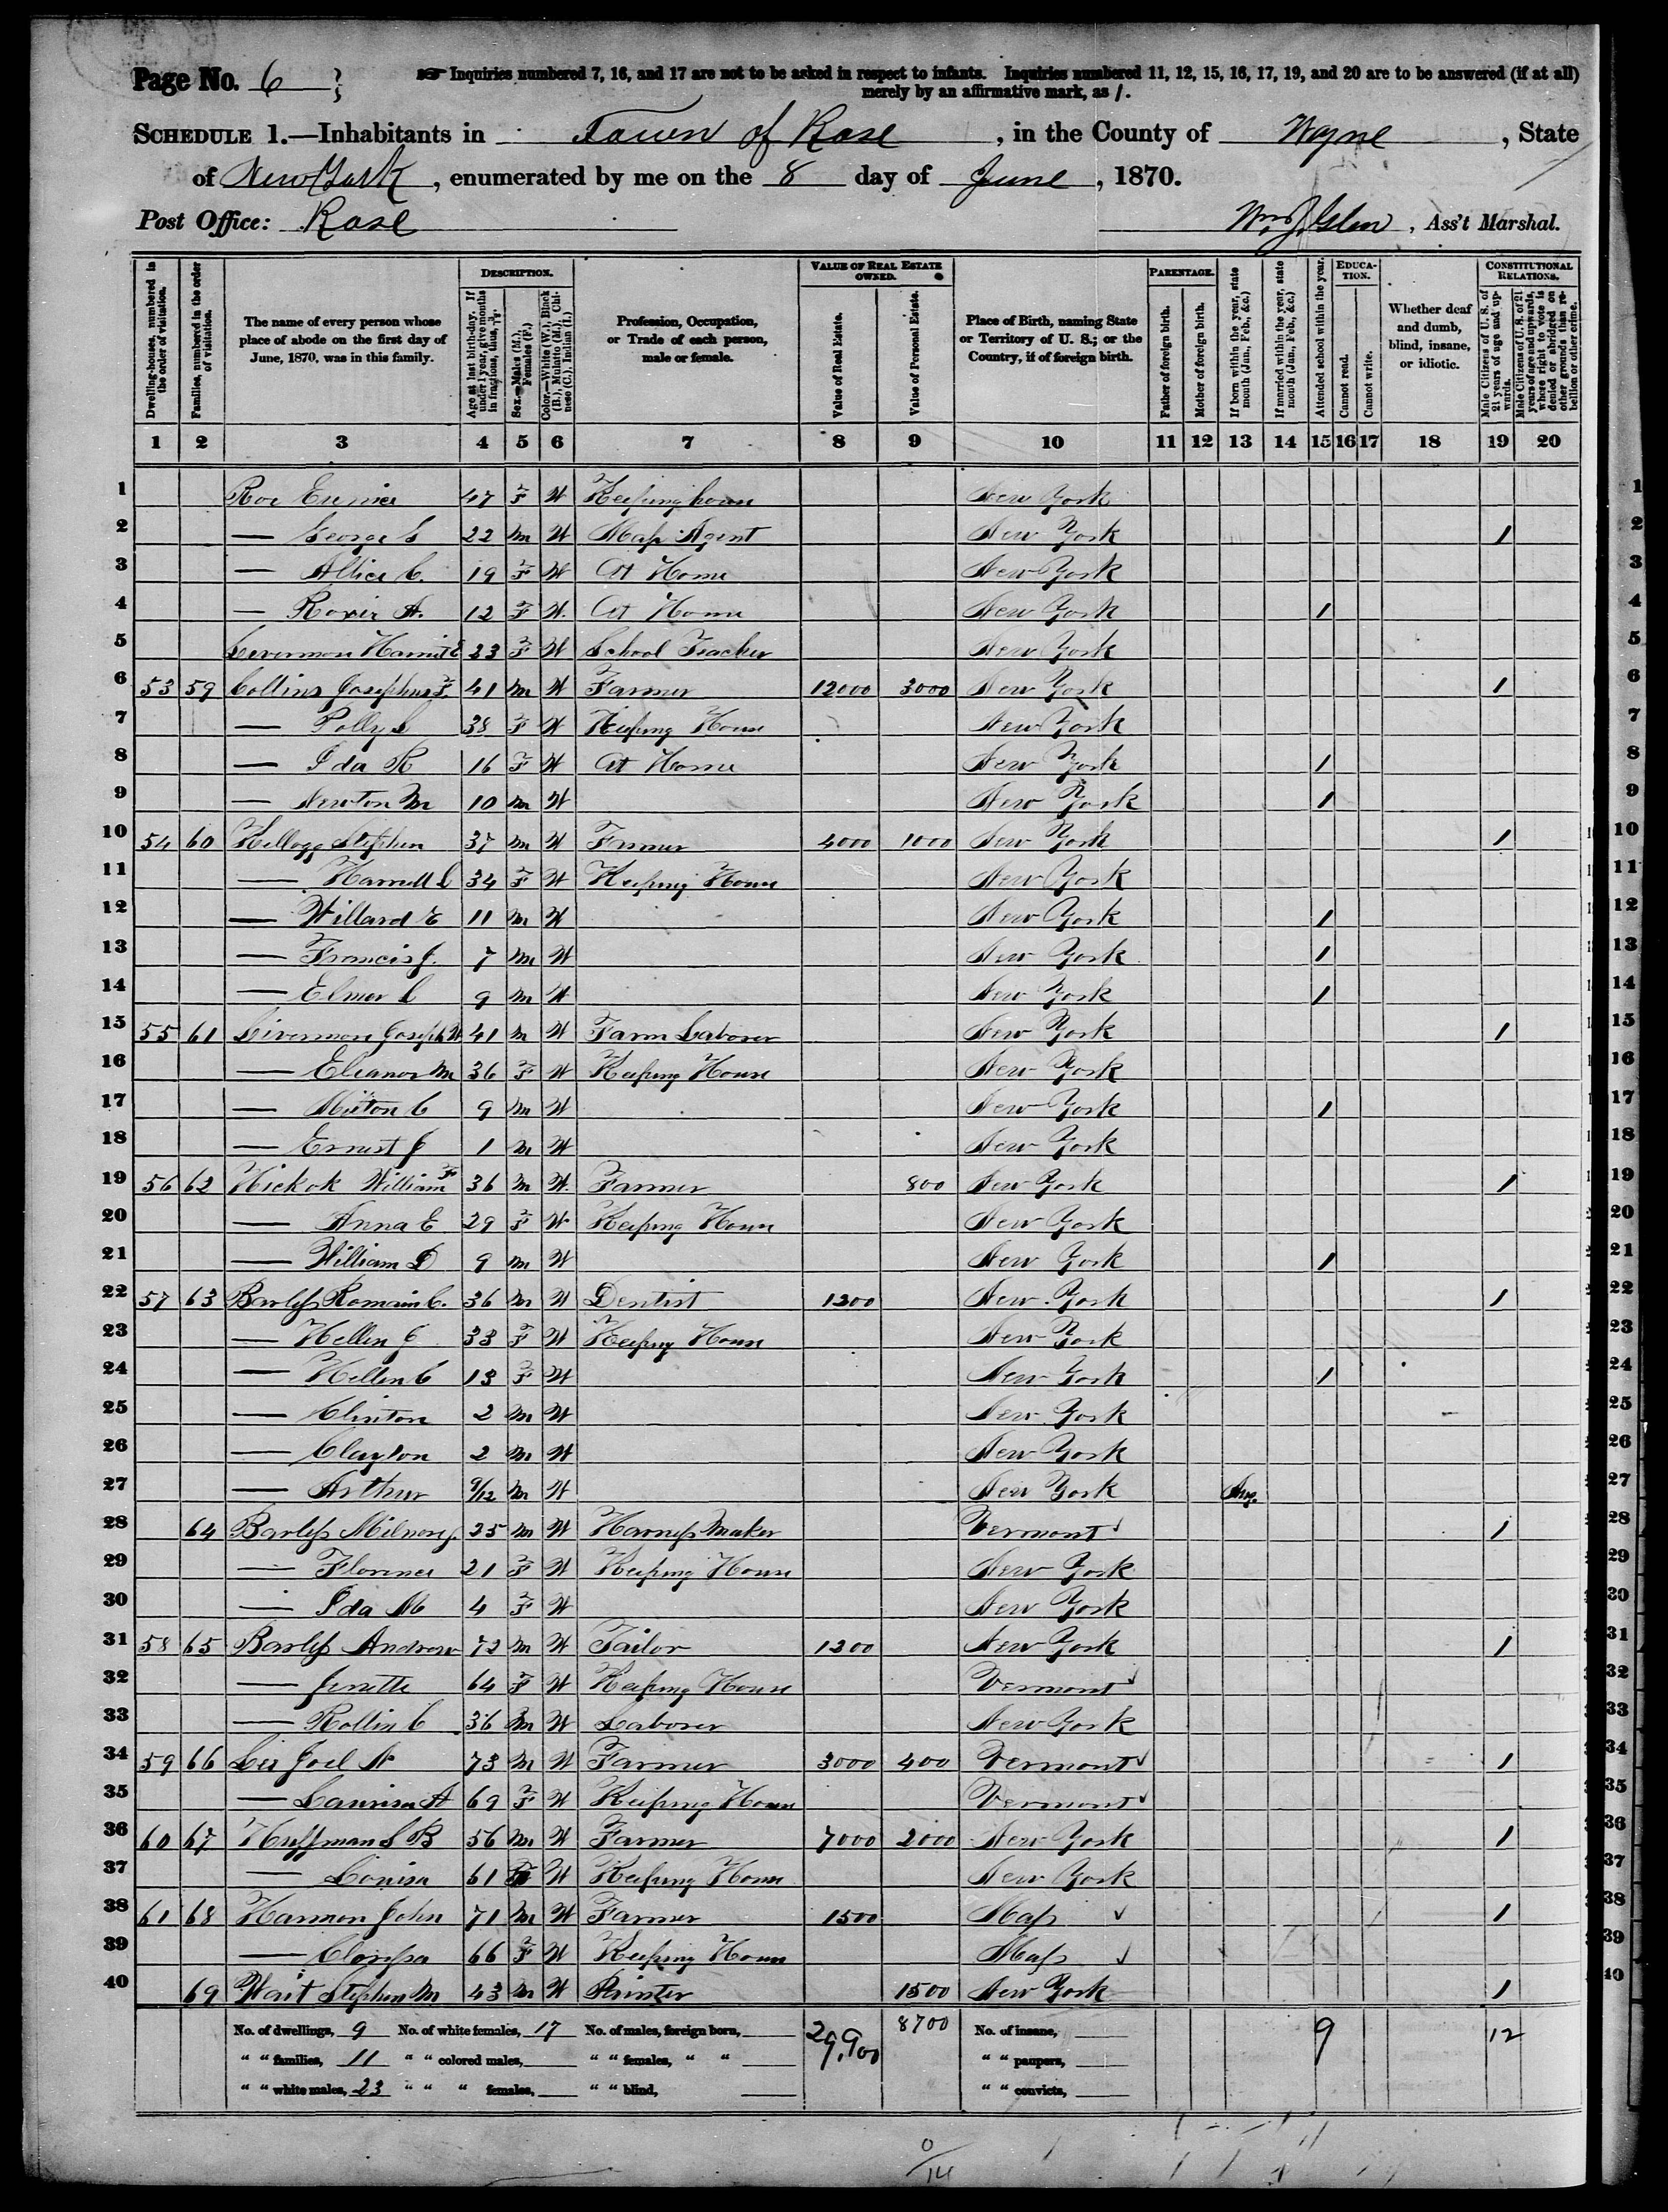 Page No. 6
Inquiries numbered 7, 16, and 17 are not to be asked in respect to infants. Inquiries numbered 11, 12, 15, 16, 17, 19, and 20 are to be answered (if at all)
merely by an affirmative mark, as /.
SCHEDULE 1.—Inhabitants in Town of Rose, in the County of Wayne, State
of New York, enumerated by me on the 8 day of June, 1870.
Post Office: Rose
Wm. J. Glen, Ass't Marshal.
Dwelling-houses, numbered in the order of visitation.
Families, numbered in the order of visitation.
The name of every person whose place of abode on the first day of June, 1870, was in this family.
DESCRIPTION.
Age at last birth-day. If under 1 year, give months in fractions, thus, 3/12.
Sex.—Males (M.), Females (F.)
Color.—White (W.), Black (B.), Mulatto (M.), Chinese (C.), Indian (I.)
Profession, Occupation, or Trade of each person, male or female.
VALUE OF REAL ESTATE OWNED.
Value of Real Estate.
Value of Personal Estate.
Place of Birth, naming State or Territory of U. S.; or the Country, if of foreign birth.
PARENTAGE.
Father of foreign birth.
Mother of foreign birth.
If born within the year, state month (Jan., Feb., &c.)
If married within the year, state month (Jan., Feb., &c.)
Attended school within the year.
EDUCATION.
Cannot read.
Cannot write.
Whether deaf and dumb, blind, insane, or idiotic.
CONSTITUTIONAL RELATIONS.
Male Citizens of U. S. of 21 years of age and upwards.
Male Citizens of U. S. of 21 years of age and upwards, whose right to vote is denied or abridged on other grounds than rebellion or other crime.
1 2 3 4 5 6 7 8 9 10 11 12 13 14 15 16 17 18 19 20
1 Roe Eunice 47 F W Keeping house New York 1
2 — George S 22 M W Map Agent New York / 2
3 — Allice C. 19 F W At Home New York 3
4 — Roxie A. 12 F W. At Home New York / 4
5 Livermon Harriet E 33 F W School Teacher New York 5
6 53 59 Collins Josephus F. 41 M W Farmer 12000 3000 New York / 6
7 — Polly S 38 F W Keeping House New York 7
8 — Ida R 16 F W At Home New York / 8
9 — Newton M 10 M W New York / 9
10 54 60 Kellogg Stephen 37 M W Farmer 4000 1000 New York / 10
11 — Harriett L 34 F W Keeping House New York 11
12 — Willard E 11 M W New York / 12
13 — Francis J. 7 M W New York / 13
14 — Elmer L 9 M W New York / 14
15 55 61 Livermon Joseph W 41 M W Farm Laborer New York / 15
16 — Eleanor M 36 F W Keeping House New York 16
17 — Milton C 9 M W New York / 17
18 — Ernest J 1 M W New York 18
19 56 62 Hickok William F 36 M W. Farmer 800 New York / 19
20 — Anna E 29 F W Keeping House New York 20
21 — William D 9 M W New York / 21
22 57 63 Barless Romain C. 36 M W Dentist 1200 New York / 22
23 — Hellen J 33 F W Keeping House New York 23
24 — Hellen C 13 F W New York / 24
25 — Clinton 2 M W New York 25
26 — Clayton 2 M W New York 26
27 — Arthur 9/12 M W New York Aug. 27
28 64 Barless Milnor J. 25 M W Harness Maker Vermont / 28
29 — Florence 21 F W Keeping House New York 29
30 — Ida M 4 F W New York 30
31 58 65 Barless Andrew 72 M W Tailor 1200 New York / 31
32 — Jenette 64 F W Keeping House Vermont 32
33 — Rollin C 36 M W Laborer New York 33
34 59 66 Lee Joel N 73 M W Farmer 3000 400 Vermont / 34
35 — Laurisa A 69 F W Keeping House Vermont 35
36 60 67 Huffman S B 56 M W Farmer 7000 2000 New York / 36
37 — Louisa 61 F W Keeping House New York 37
38 61 68 Harmon John 71 M W Farmer 1500 Mass / 38
39 — Clarissa 66 F W Keeping House Mass 39
40 69 Wait Stephen M 43 M W Painter 1500 New York / 40
No. of dwellings, 9 No. of white females, 17 No. of males, foreign born, 29,900 8700 No. of insane, 9 12
" " families, 11 " " colored males, " " females, " " " " paupers,
" " white males, 23 " " " females, " " blind, " " convicts,
0/14